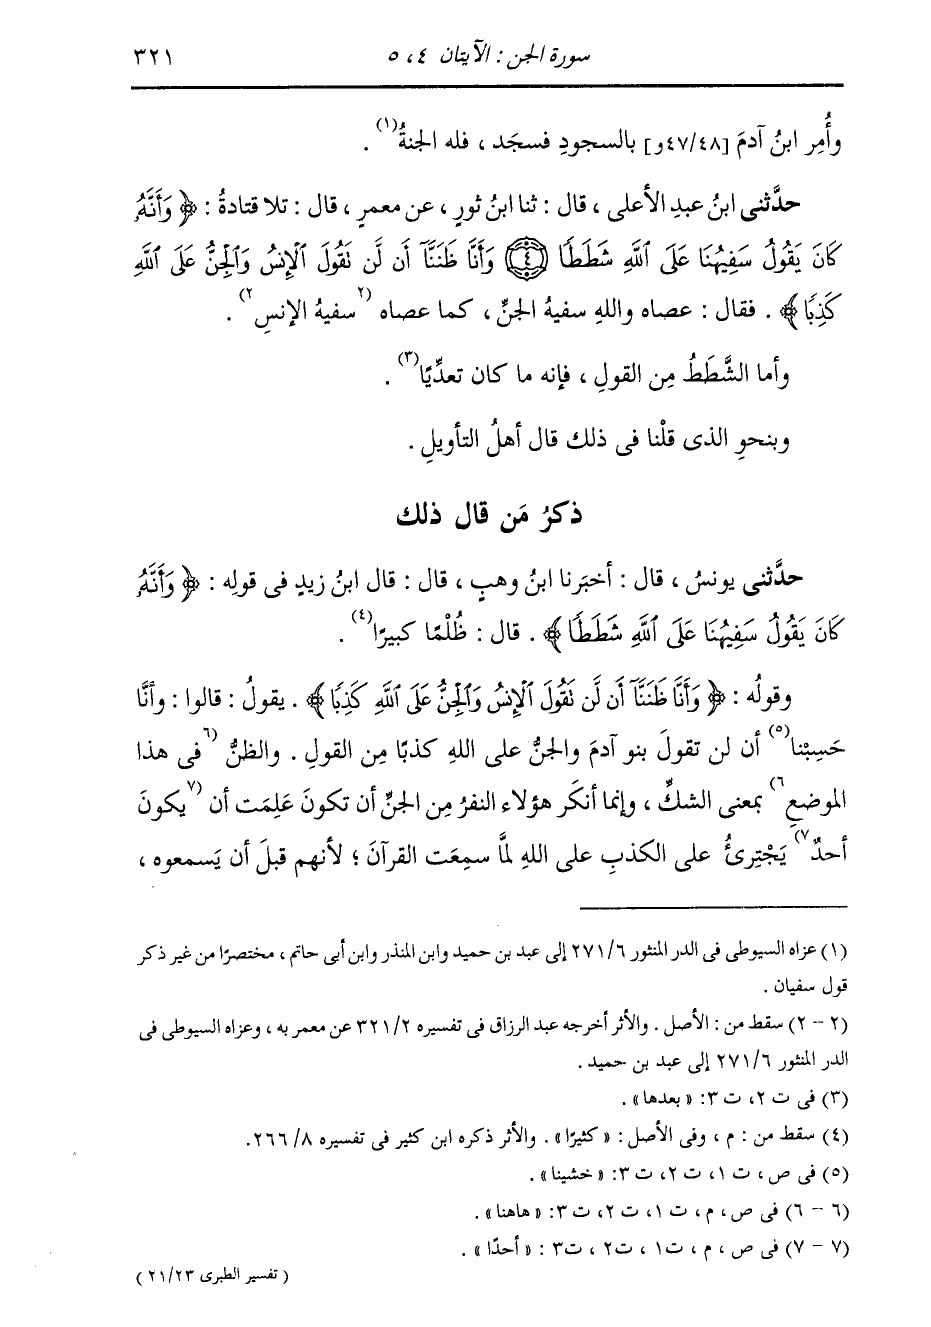 سورة الجن : الآيتان ٤ ، ٥
٣٢١
وأُمِر ابنُ آدمَ [٤٧/٤٨و] بالسجودِ فسجَد ، فله الجنةُ(١) .
حدَّثني ابنُ عبدِ الأعلى ، قال : ثنا ابنُ ثورٍ ، عن معمرٍ ، قال : تلا قتادةُ : ﴿ وَأَنَّهُ
كَانَ يَقُولُ سَفِيهُنَا عَلَى ٱللَّهِ شَطَطًا ﴿٤﴾ وَأَنَّا ظَنَنَّآ أَن لَّن نَقُولَ ٱلْإِنسُ وَٱلْجِنُّ عَلَى ٱللَّهِ
كَذِبًا ﴾ . فقال : عصاه واللهِ سفيهُ الجنِّ ، كما عصاه (٢سفيهُ الإنسِ٢) .
وأما الشَّطَطُ مِن القولِ ، فإنه ما كان تعدِّيًا(٣) .
وبنحوِ الذى قلْنا فى ذلك قال أهلُ التأويلِ .
ذكرُ مَن قال ذلك
حدَّثنى يونسُ ، قال : أخبَرنا ابنُ وهبٍ ، قال : قال ابنُ زيدٍ فى قولِه : ﴿ وَأَنَّهُ
كَانَ يَقُولُ سَفِيهُنَا عَلَى ٱللَّهِ شَطَطًا ﴾ . قال : ظُلْمًا كبيرًا(٤) .
وقولُه : ﴿ وَأَنَّا ظَنَنَّآ أَن لَّن نَقُولَ ٱلْإِنسُ وَٱلْجِنُّ عَلَى ٱللَّهِ كَذِبًا ﴾ . يقولُ : قالوا : وأنَّا
حَسِبْنا(٥) أن لن تقولَ بنو آدمَ والجنُّ على اللهِ كذبًا مِن القولِ . والظنُّ (٦فى هذا
الموضعِ٦) بمعنى الشكِّ ، وإنما أنكَر هؤلاء النفرُ مِن الجنِّ أن تكونَ عَلِمَت أن (٧يكونَ
أحدٌ٧) يَجْتَرِئُ على الكذبِ على اللهِ لمَّا سمِعَت القرآنَ ؛ لأنهم قبلَ أن يَسمعوه ،
(١) عزاه السيوطى فى الدر المنثور ٢٧١/٦ إلى عبد بن حميد وابن المنذر وابن أبى حاتم ، مختصرًا من غير ذكر
قول سفيان .
(٢ - ٢) سقط من : الأصل . والأثر أخرجه عبد الرزاق فى تفسيره ٣٢١/٢ عن معمر به ، وعزاه السيوطى فى
الدر المنثور ٢٧١/٦ إلى عبد بن حميد .
(٣) فى ت ٢، ت ٣: « بعدها » .
(٤) سقط من : م ، وفى الأصل : « كثيرًا » . والأثر ذكره ابن كثير فى تفسيره ٢٦٦/٨.
(٥) فى ص ، ت ١، ت ٢، ت ٣: « خشينا » .
(٦ - ٦) فى ص ، م ، ت ١، ت ٢، ت ٣: « هاهنا » .
(٧ - ٧) فى ص ، م ، ت١ ، ت٢ ، ت٣ : « أحدًا » .
( تفسير الطبرى ٢١/٢٣ )